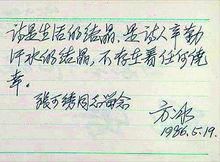 诗是生活的结晶，是诗人辛勤
汗水的结晶，不存在着任何侥
幸。
张可绣同志留念
方冰
1986.5.19.